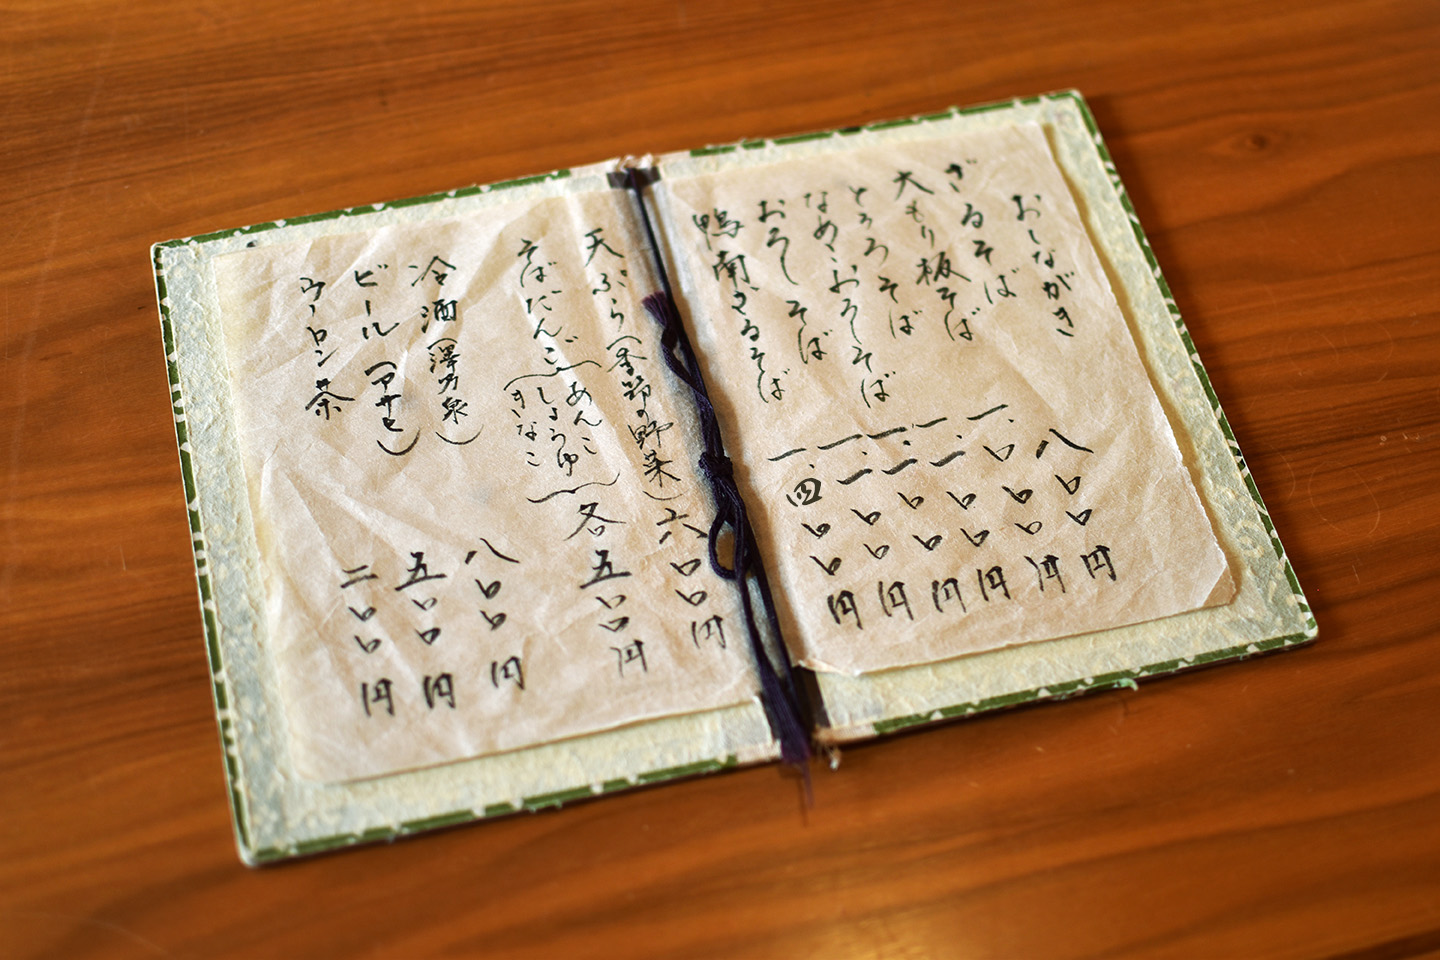 おしながき
ざるそば 八〇〇円
大もり板そば 一、〇〇〇円
とろろそば 一、一〇〇円
なめこおろしそば 一、一〇〇円
おろしそば 一、一〇〇円
鴨南ざるそば 一、四〇〇円
天ぷら(季節の野菜) 六〇〇円
そばだんご(あんこ しょうゆ きなこ) 各五〇〇円
冷酒(澤乃泉) 八〇〇円
ビール(アサヒ) 五〇〇円
ウーロン茶 二〇〇円